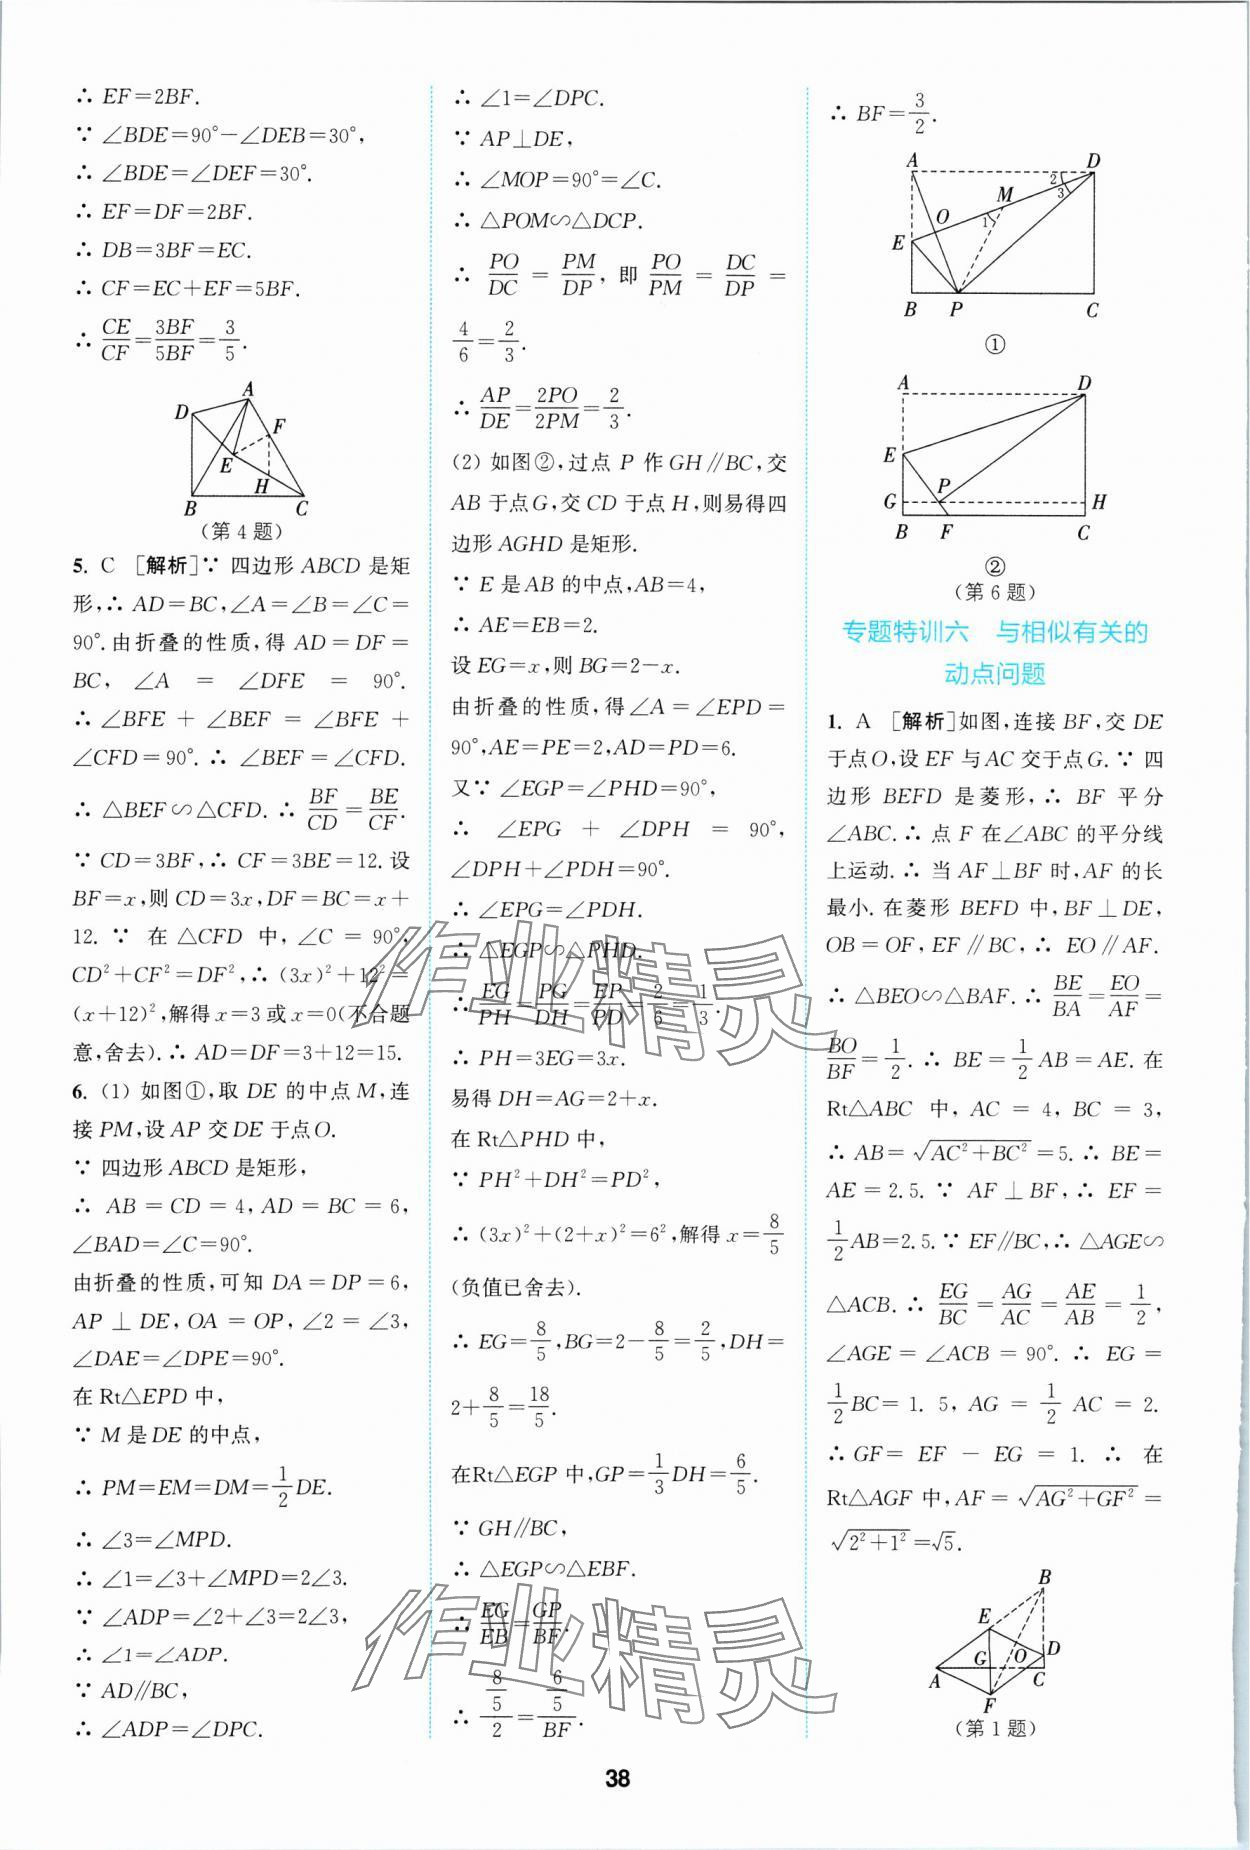 ∴ EF=2BF.
∵ ∠BDE=90°－∠DEB=30°,
∴ ∠BDE=∠DEF=30°.
∴ EF=DF=2BF.
∴ DB=3BF=EC.
∴ CF=EC+EF=5BF.
∴ CE/CF=3BF/5BF=3/5.
A
D
F
E
H
B
C
(第4题)
5. C [解析]∵ 四边形 ABCD 是矩
形,∴ AD=BC,∠A=∠B=∠C=
90°.由折叠的性质,得 AD=DF=
BC, ∠A = ∠DFE = 90°.
∴ ∠BFE + ∠BEF = ∠BFE +
∠CFD=90°.∴ ∠BEF=∠CFD.
∴ △BEF∽△CFD.∴ BF/CD=BE/CF.
∵ CD=3BF,∴ CF=3BE=12.设
BF=x,则 CD=3x,DF=BC=x+
12.∵ 在△CFD 中,∠C=90°,
CD²+CF²=DF²,∴ (3x)²+12²=
(x+12)²,解得 x=3 或 x=0(不合题
意,舍去).∴ AD=DF=3+12=15.
6. (1) 如图①,取 DE 的中点 M,连
接 PM,设 AP 交 DE 于点 O.
∵ 四边形 ABCD 是矩形,
∴ AB=CD=4,AD=BC=6,
∠BAD=∠C=90°.
由折叠的性质,可知 DA=DP=6,
AP⊥DE,OA=OP,∠2=∠3,
∠DAE=∠DPE=90°.
在 Rt△EPD 中,
∵ M 是 DE 的中点,
∴ PM=EM=DM=1/2DE.
∴ ∠3=∠MPD.
∴ ∠1=∠3+∠MPD=2∠3.
∵ ∠ADP=∠2+∠3=2∠3,
∴ ∠1=∠ADP.
∵ AD∥BC,
∴ ∠ADP=∠DPC.
∴ ∠1=∠DPC.
∵ AP⊥DE,
∴ ∠MOP=90°=∠C.
∴ △POM∽△DCP.
∴ PO/DC = PM/DP, 即 PO/PM = DC/DP =
4/6=2/3.
∴ AP/DE=2PO/2PM=2/3.
(2) 如图②,过点 P 作 GH∥BC,交
AB 于点 G,交 CD 于点 H,则易得四
边形 AGHD 是矩形.
∵ E 是 AB 的中点,AB=4,
∴ AE=EB=2.
设 EG=x,则 BG=2－x.
由折叠的性质,得∠A=∠EPD=
90°,AE=PE=2,AD=PD=6.
又∵ ∠EGP=∠PHD=90°,
∴ ∠EPG + ∠DPH = 90°,
∠DPH+∠PDH=90°.
∴ ∠EPG=∠PDH.
∴ △EGP∽△PHD.
∴ EG/PH=PG/DH=EP/PD=2/6=1/3.
∴ PH=3EG=3x.
易得 DH=AG=2+x.
在 Rt△PHD 中,
∵ PH²+DH²=PD²,
∴ (3x)²+(2+x)²=6²,解得 x=8/5
(负值已舍去).
∴ EG=8/5,BG=2－8/5=2/5,DH=
2+8/5=18/5.
在Rt△EGP 中,GP=1/3DH=6/5.
∵ GH∥BC,
∴ △EGP∽△EBF.
∴ EG/EB=GP/BF.
∴ (8/5)/2=(6/5)/BF.
∴ BF=3/2.
A
D
2
3
M
O
1
E
B
P
C
①
A
D
E
G
P
H
B
F
C
②
(第6题)
专题特训六 与相似有关的
动点问题
1. A [解析]如图,连接 BF,交 DE
于点 O,设 EF 与 AC 交于点 G.∵ 四
边形 BEFD 是菱形,∴ BF 平分
∠ABC.∴ 点 F 在∠ABC 的平分线
上运动.∴ 当 AF⊥BF 时,AF 的长
最小.在菱形 BEFD 中,BF⊥DE,
OB=OF,EF∥BC,∴ EO∥AF.
∴ △BEO∽△BAF.∴ BE/BA=EO/AF=
BO/BF=1/2.∴ BE=1/2AB=AE.在
Rt△ABC 中, AC=4, BC=3,
∴ AB=√(AC²+BC²)=5.∴ BE=
AE=2.5.∵ AF⊥BF,∴ EF=
1/2AB=2.5.∵ EF∥BC,∴ △AGE∽
△ACB.∴ EG/BC=AG/AC=AE/AB=1/2,
∠AGE=∠ACB=90°.∴ EG=
1/2BC=1.5, AG=1/2AC=2.
∴ GF=EF－EG=1.∴ 在
Rt△AGF 中,AF=√(AG²+GF²)=
√(2²+1²)=√5.
B
E
D
G
O
A
C
F
(第1题)
作业精灵
作业精灵
38